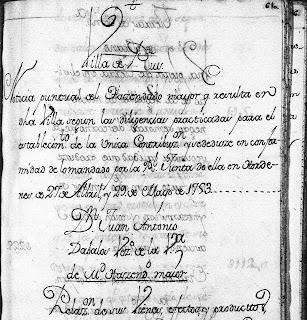 Villa de
Noticia puntual del Hazendado mayor q resulta en
dha Villa segun las diligencias practicadas para el
establecim.to de la Unica Contribuz.on q se deduze en confor
midad de lo mandado por la R.l Junta de ella en Horde
nes de 27 de Abril, y 29 de Maio de 1753
D.n Juan Antonio
Dabala Vez.no de la V.a
de M.s Hazend.o maior
Relaz.on de sus vienes, efectos y productos